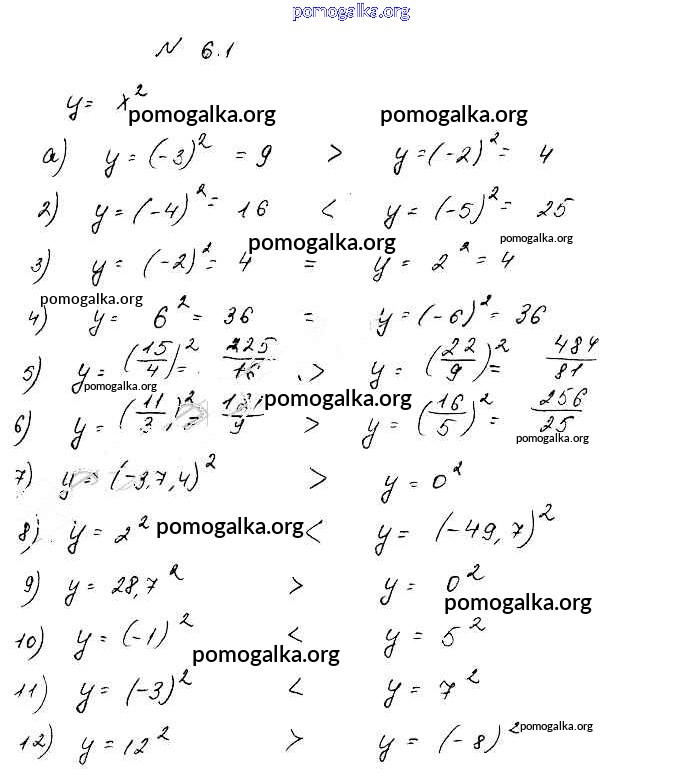 pomogalka.org
N 6.1
y = x²
pomogalka.org pomogalka.org
а) y = (-3)² = 9 > y = (-2)² = 4
2) y = (-4)² = 16 < y = (-5)² = 25
pomogalka.org pomogalka.org
3) y = (-2)² = 4 = y = 2² = 4
pomogalka.org
4) y = 6² = 36 = y = (-6)² = 36
5) y = (15/4)² = 225/16 > y = (22/9)² = 484/81
pomogalka.org pomogalka.org
6) y = (11/3)² = 121/9 > y = (16/5)² = 256/25
pomogalka.org
7) y = (-3,7,4)² > y = 0²
8) y = 2² < y = (-49,7)²
pomogalka.org
9) y = 28,7² > y = 0²
pomogalka.org
10) y = (-1)² < y = 5²
pomogalka.org
11) y = (-3)² < y = 7²
12) y = 12² > y = (-8)²
pomogalka.org